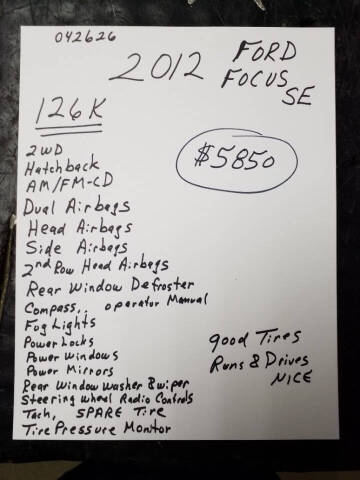 042626
2012 FORD
FOCUS
SE
126K
$5850
2WD
Hatchback
AM/FM-CD
Dual Airbags
Head Airbags
Side Airbags
2nd Row Head Airbags
Rear Window Defroster
Compass,, operator Manual
Fog Lights
Power Locks
Power Windows
Power Mirrors
Rear Window Washer & wiper
Steering Wheel Radio Controls
Tach, SPARE Tire
Tire Pressure Monitor
good Tires
Runs & Drives
NICE